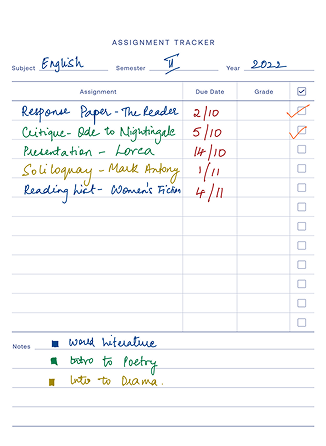 ASSIGNMENT TRACKER
Subject English Semester II Year 2022
Assignment Due Date Grade
Response Paper - The Reader 2/10
Critique - Ode to Nightingale 5/10
Presentation - Lorca 14/10
Soliloquay - Mark Antony 1/11
Reading List - Women's Fiction 4/11
Notes World Literature
Intro to Poetry
Intro to Drama.